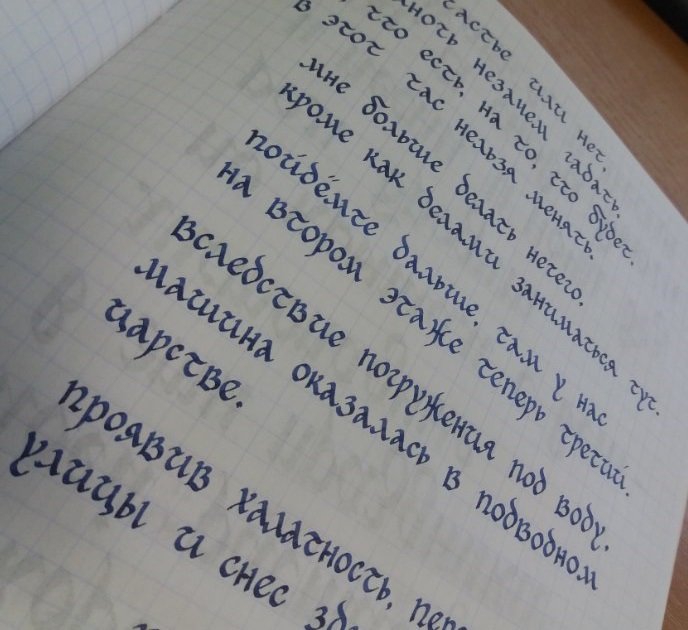 или нет.
незачем гадать.
что есть, на то, что будет.
в этот час нельзя менять.
мне больше делать нечего,
кроме как делами заниматься тут.
пойдёмте дальше, там у нас
на втором этаже теперь третий.
вследствие погружения под воду,
машина оказалась в подводном
царстве.
проявив халатность,
улицы и снес